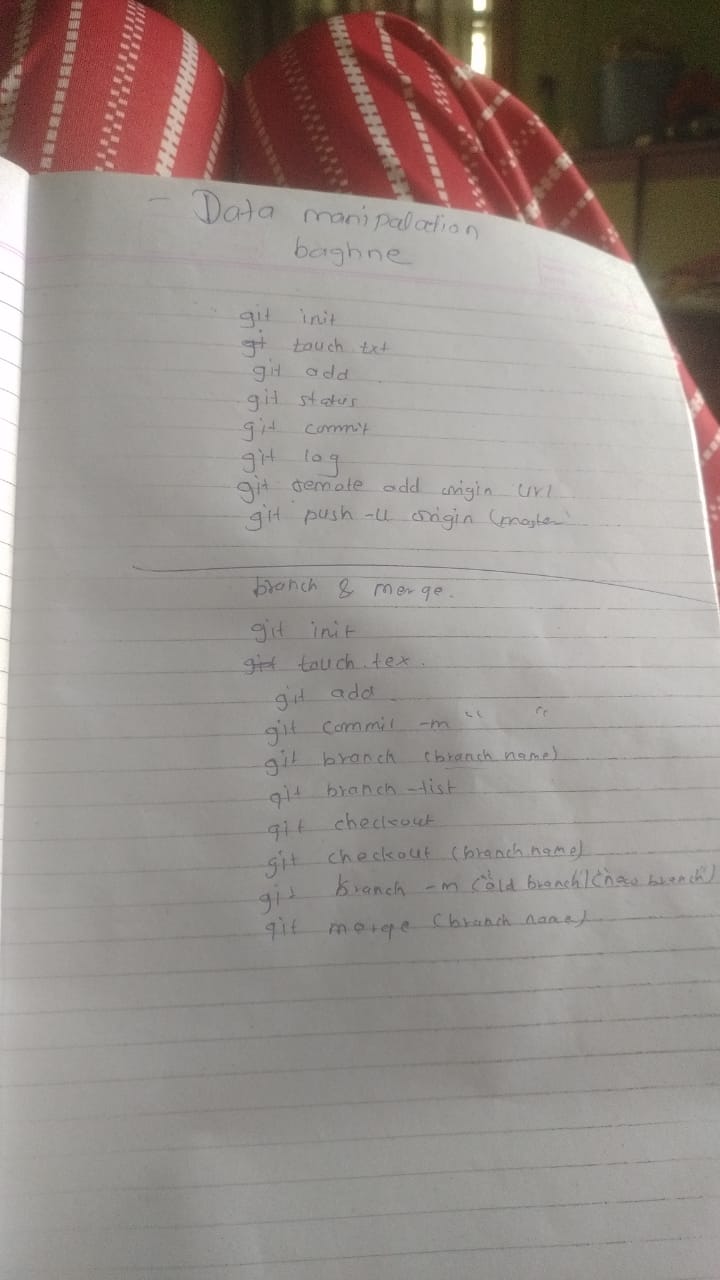 - Data manipalation
baghne
git init
touch txt
git add .
git status
git commit
git log
git remote add origin url
git push -u origin (master
branch & merge.
git init
touch.tex.
git add .
git commit -m " "
git branch (branch name)
git branch -list
git checkout
git checkout (branch name)
git branch -m (old branch) (new branch)
git merge (branch name)